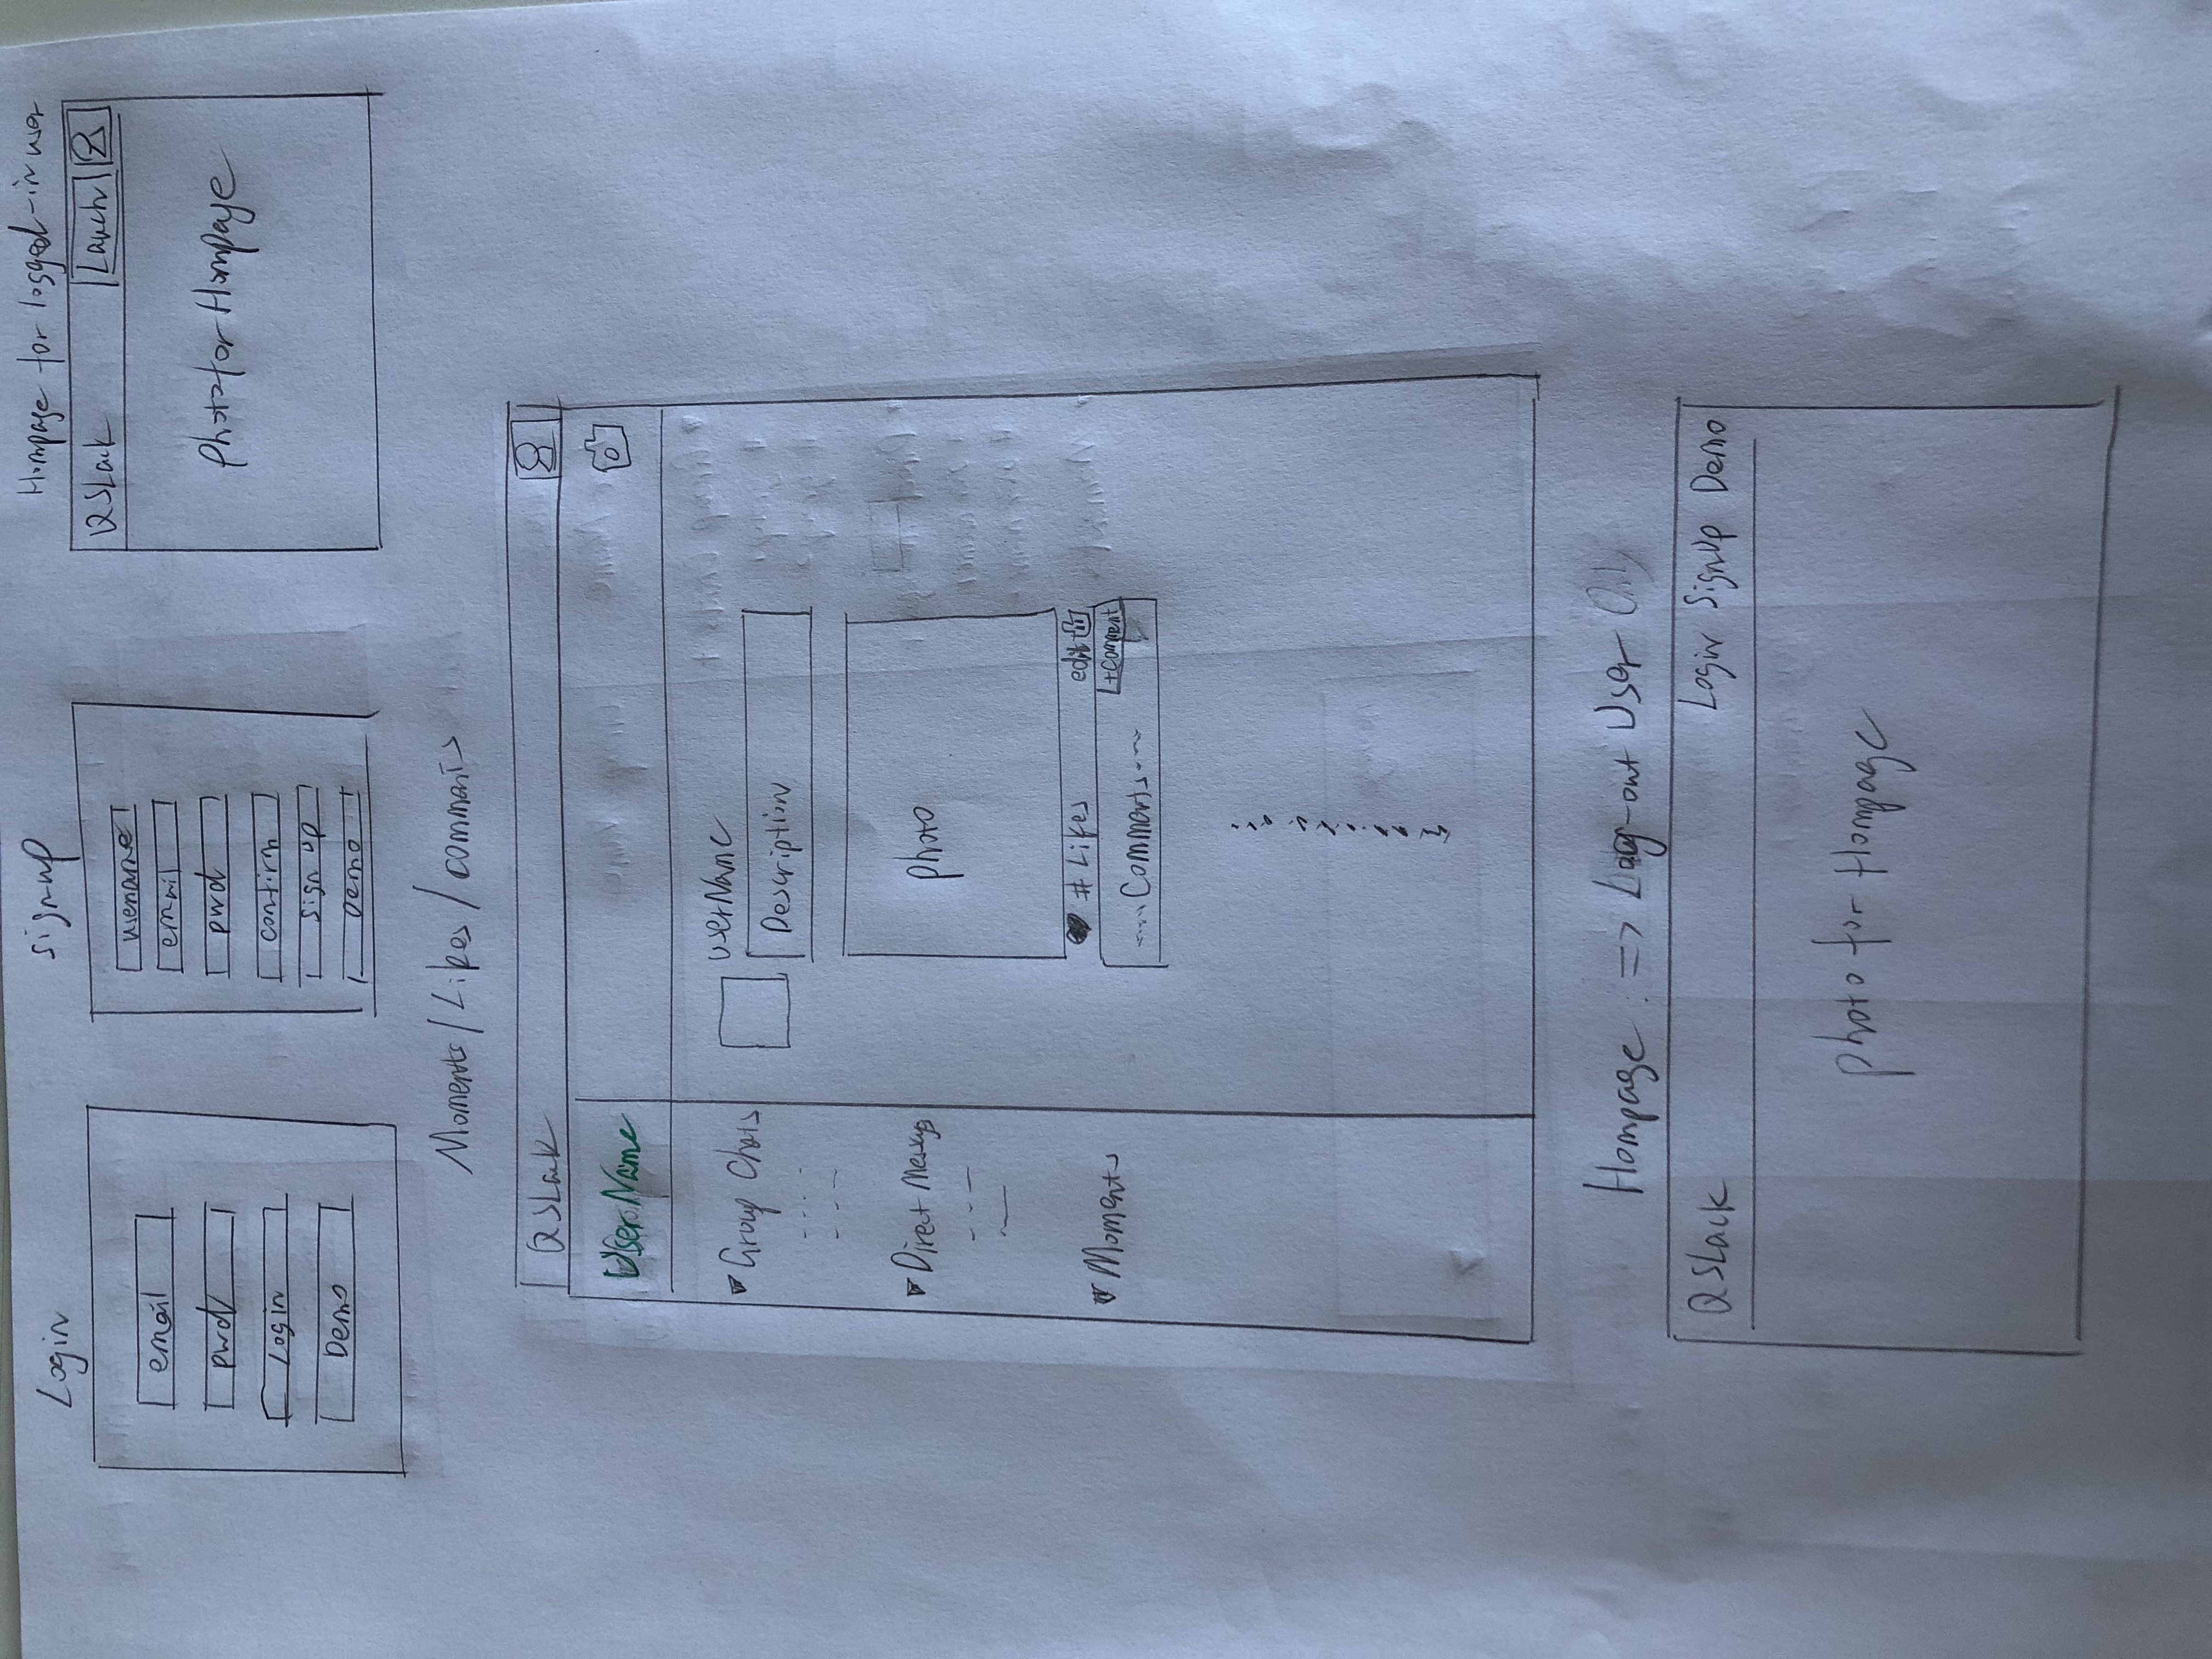 Login
email
pwd
Login
Demo
signup
usename
email
pwd
confirm
sign up
Demo
Hompage for logged-in user
QSLack
photo for Hompage
Moments/Likes/comments
QSLack
UserName
Group Chats
Direct Message
Moments
UserName
Description
photo
# Likes
edit
+Comment
Comments
Hompage => Log-out User Only
QSLack
Login SignUp Demo
photo for Hompage